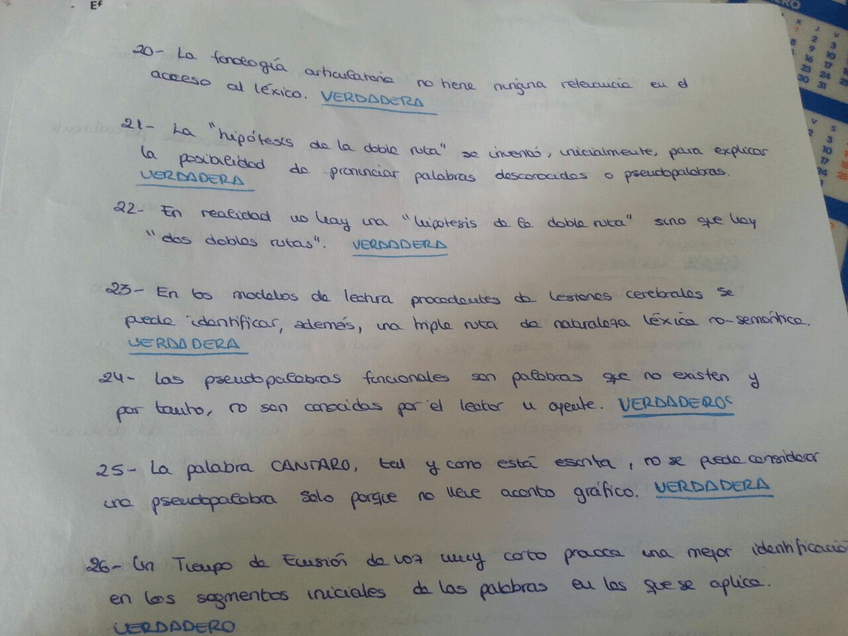 Ef
20- La fonología articulatoria no tiene ninguna relevancia en el
acceso al léxico. VERDADERA
21- La "hipótesis de la doble ruta" se inventó, inicialmente, para explicar
la posibilidad de pronunciar palabras desconocidas o pseudopalabras.
VERDADERA
22- En realidad no hay una "hipótesis de la doble ruta" sino que hay
"dos dobles rutas". VERDADERA
23- En los modelos de lectura procedentes de lesiones cerebrales se
puede identificar, además, una triple ruta de naturaleza léxica no-semántica.
VERDADERA
24- Las pseudopalabras funcionales son palabras que no existen y
por tanto, no son conocidas por el lector u oyente. VERDADEROS
25- La palabra CANTARO, tal y como está escrita, no se puede considerar
una pseudopalabra solo porque no lleve acento gráfico. VERDADERA
26- Un Tiempo de Emisión de voz muy corto provoca una mejor identificació
en los segmentos iniciales de las palabras en las que se aplica.
VERDADERO